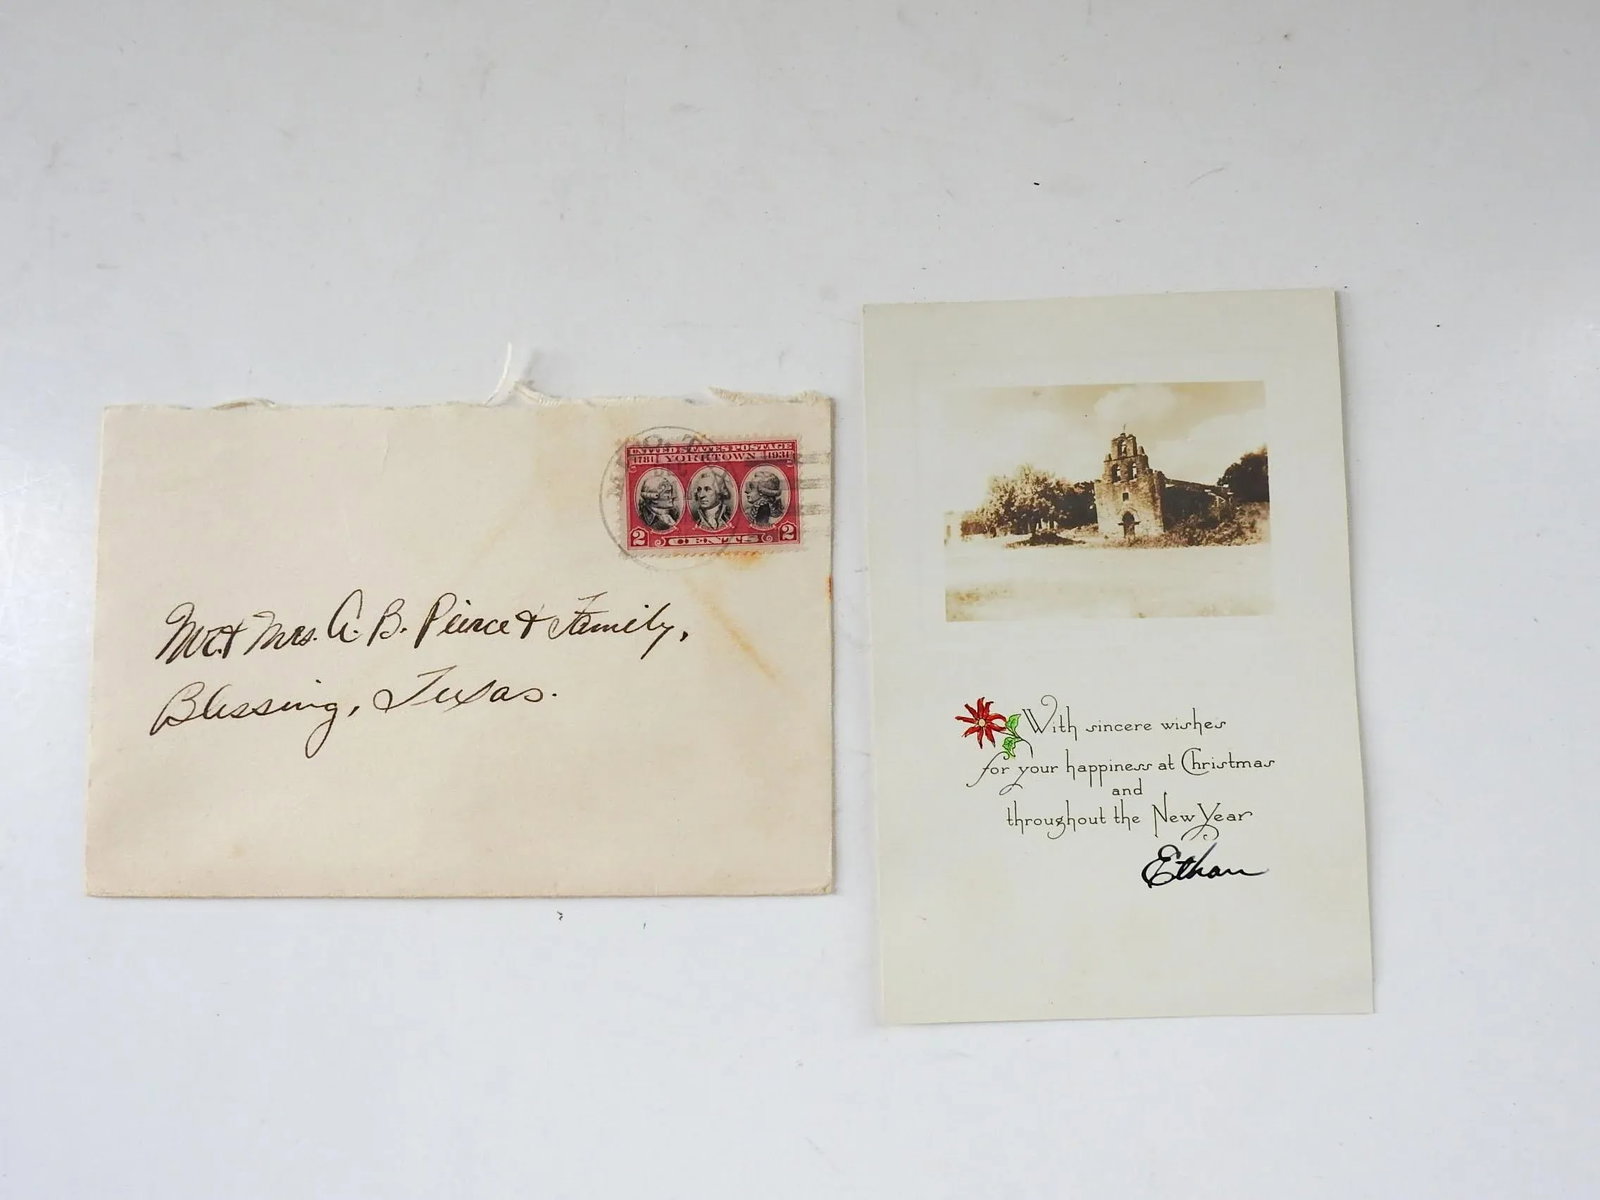 UNITED STATES POSTAGE
1781 YORKTOWN 1931
2 CENTS 2
Mr. & Mrs. A. B. Peirce & Family,
Blessing, Texas.
With sincere wishes
for your happiness at Christmas
and
throughout the New Year
Ethan